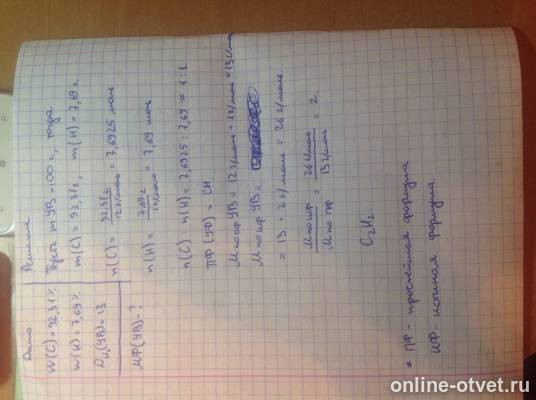 Дано
W(C) = 92,31%
W(H) = 7,69%
D H₂(УВ) = 13
МФ(УВ) - ?
Решение
Пусть m УВ = 100 г, тогда
m(C) = 92,31г, m(H) = 7,69г
n(C) = 92,31г / 12 г/моль = 7,6925 моль
n(H) = 7,69г / 1 г/моль = 7,69 моль
n(C) n(H) = 7,6925 : 7,69 = 1:1
ПФ (УВ) = CH.
M по пф УВ = 12 г/моль + 1 г/моль = 13 г/моль
M по иф УВ =
= 13 · 2 г/моль = 26 г/моль.
M по иф / M по пф = 26 г/моль / 13 г/моль = 2.
C₂H₂
* ПФ - простейшая формула
ИФ - истинная формула.
online-otvet.ru